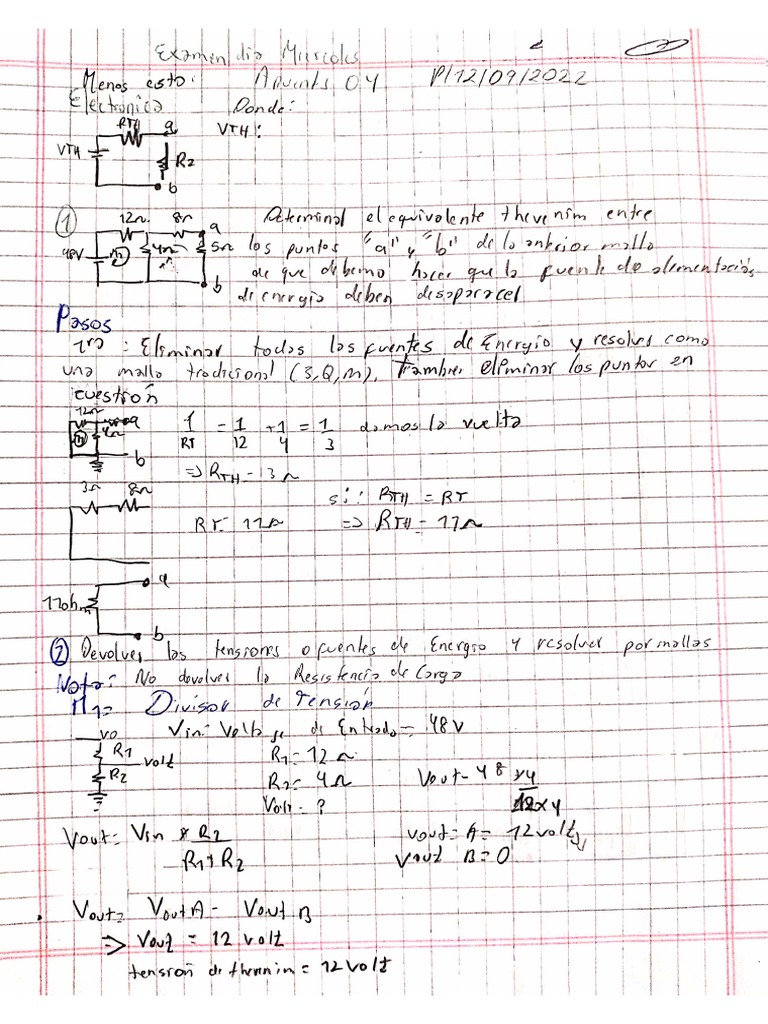 Examen dia Miercoles
Menos esto: Apunts 04 P/12/09/2022
Electronica Donde:
RTH a VTH:
VTH R2
b
① 12Ω 8Ω a Determinal el equivalente thevenim entre
48V 4Ω 5Ω los puntos "a" y "b" de la anterior malla
de que debemo hacer que la fuente de alimentación
b di energia deben desaparacel
Pasos
1ra: Eliminar todas las fuentes de Energio y resolves como
una malla tradicional (3,Q,M). Tambien eliminar los puntor en
cuestión
12Ω a 1/RT = 1/12 + 1/4 = 1/3 damos la vuelta
4Ω
b => RTH = 3Ω
3Ω 8Ω si: RTH = RT
RT = 11Ω => RTH = 11Ω
a
11ohm
b
② Devolves las tensiones o fuentes de Energio y resolver por mallas
Nota: No devolves la Resistencia de Carga
M1= Divisor de Tensión
vo Vin: Voltaje de Entrada = 48V
R1 volt R1 = 12Ω
R2 R2 = 4Ω Vout = 48 x4
Volt = ? 12x4
Vout = Vin * R2 vout = A = 12 volt
R1+R2 Vout B = 0
Vout = Vout A - Vout B
=> Vout = 12 volt
tensión de thevnin = 12 Volt